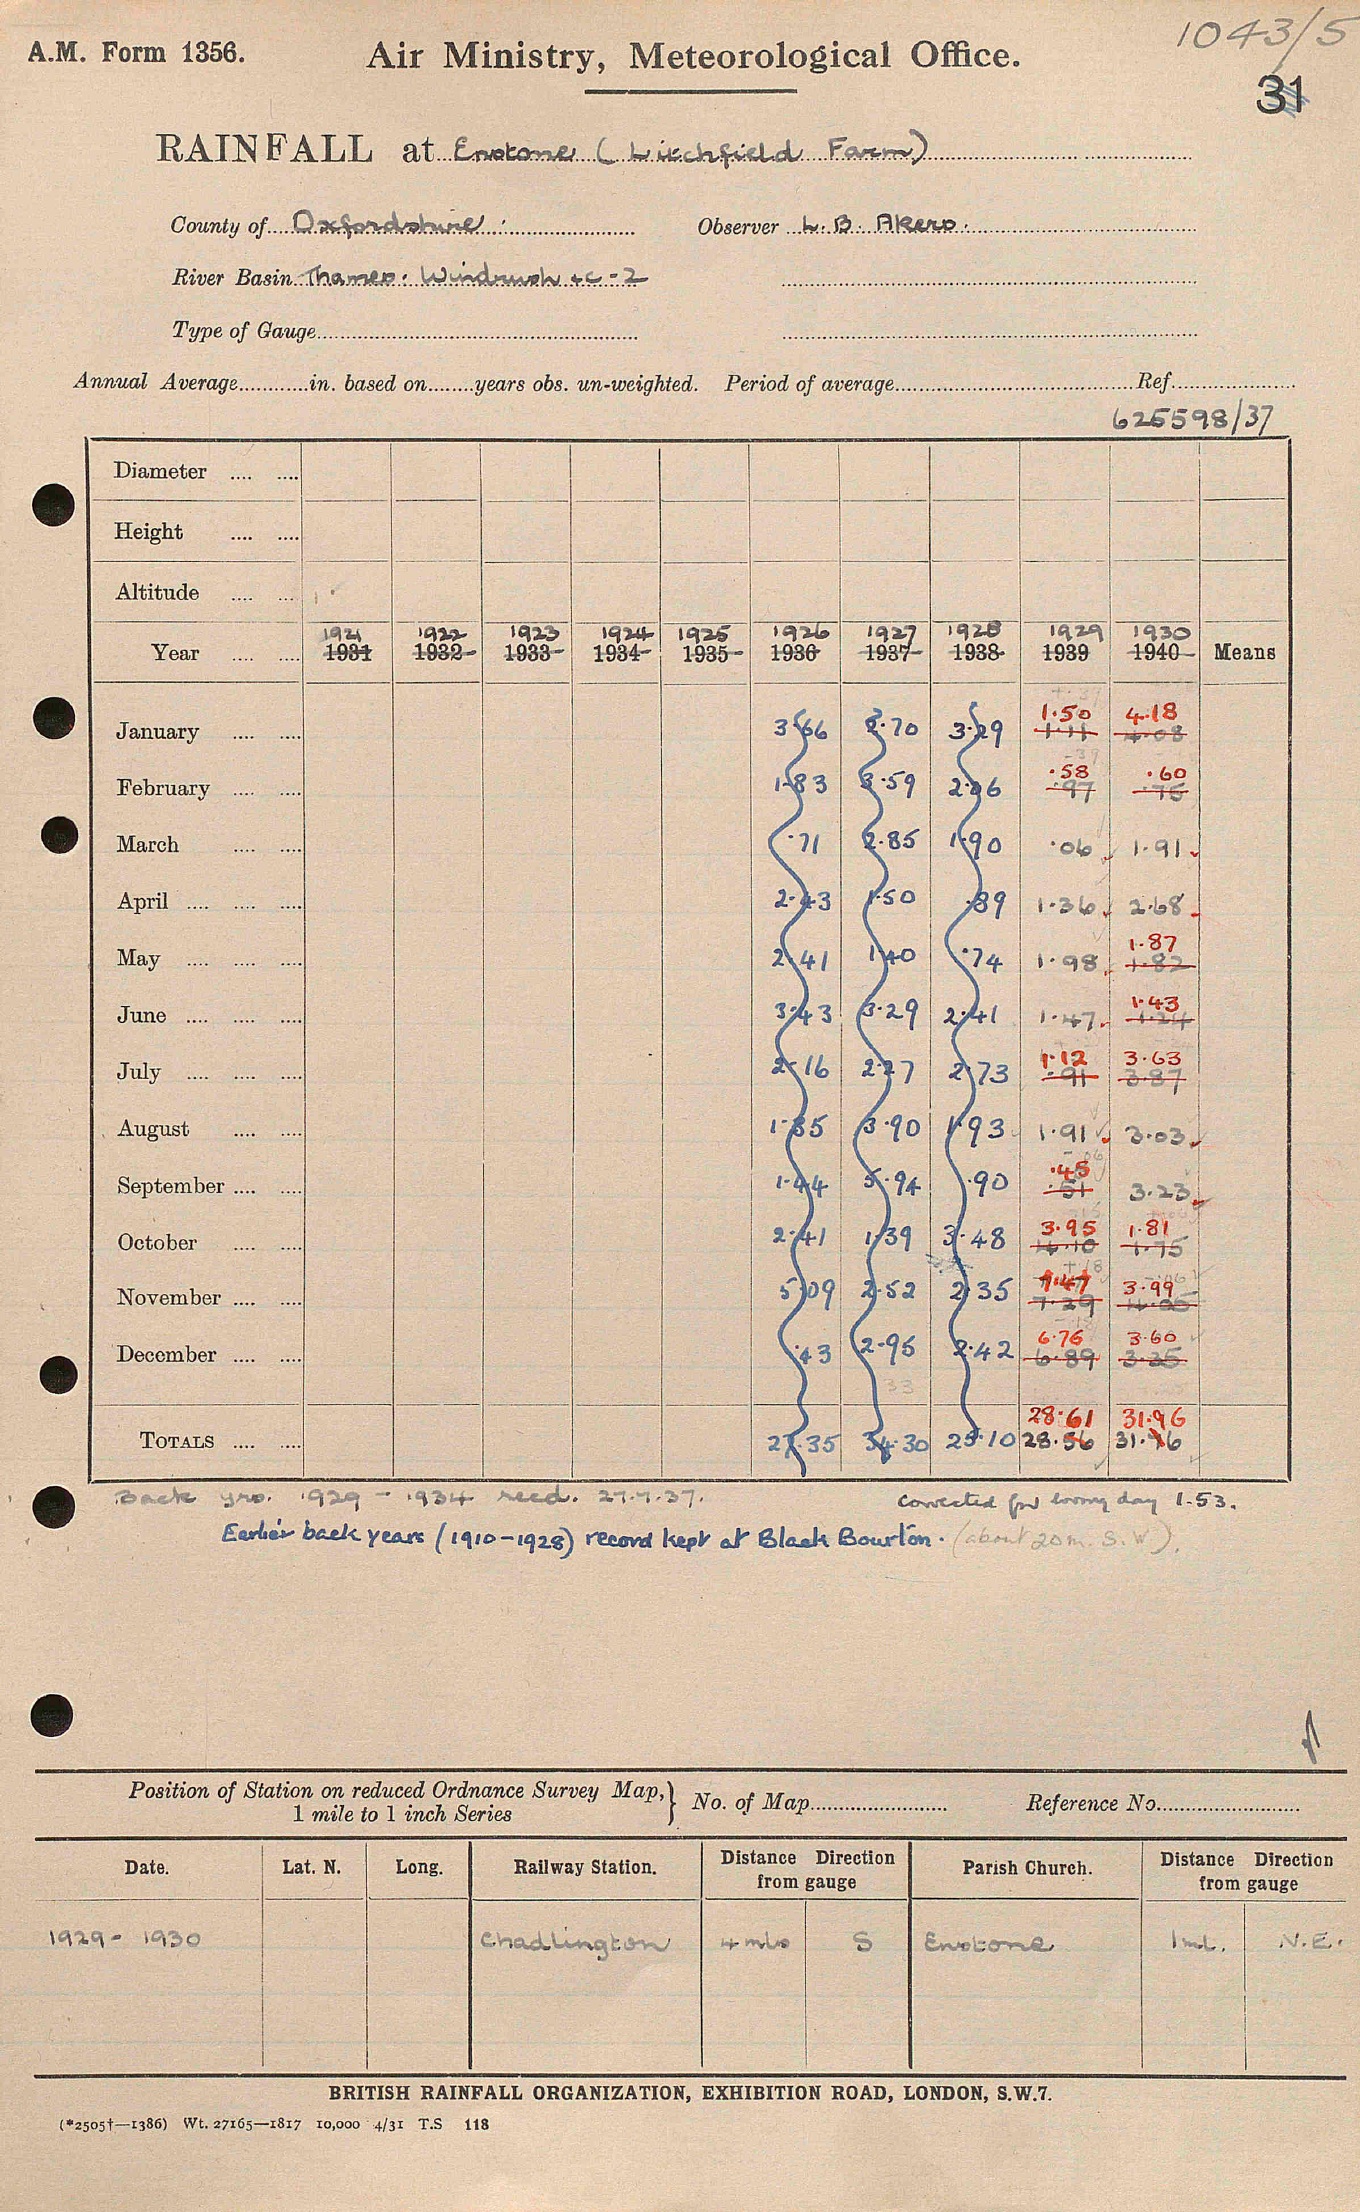 1043/5
A.M. Form 1356. Air Ministry, Meteorological Office.
31
RAINFALL at Enstone (Litchfield Farm)
County of Oxfordshire Observer L. B. Akers.
River Basin Thames. Windrush &c - 2
Type of Gauge
Annual Average in. based on years obs. un-weighted. Period of average Ref.
625598/37
Diameter
Height
Altitude
1921 1922 1923 1924 1925 1926 1927 1928 1929 1930
Year 1931 1932 1933 1934 1935 1936 1937 1938 1939 1940 Means
1.50 4.18
January 3.66 2.70 3.29 1.11 4.08
.58 .60
February 1.83 3.59 2.06 .97 .75
March .71 2.85 1.90 .06 1.91
April 2.43 1.50 .89 1.36 2.68
1.87
May 2.41 1.40 .74 1.98 1.82
1.43
June 3.43 3.29 2.41 1.47 1.24
1.12 3.63
July 2.16 2.27 2.73 .91 3.87
August 1.35 3.90 1.93 1.91 3.03
.45
September 1.44 5.94 .90 .51 3.23
3.95 1.81
October 2.41 1.39 3.48 4.10 1.75
7.47 3.99
November 5.09 2.52 2.35 7.29 4.05
6.76 3.60
December .43 2.95 2.42 6.89 3.35
28.61 31.96
TOTALS 27.35 34.30 25.10 28.56
Back yrs. 1929 - 1934 recd. 27.7.37. Corrected for wrong day 1.53.
Earlier back years (1910-1928) record kept at Black Bourton. (about 20m. S.W).
Position of Station on reduced Ordnance Survey Map, } No. of Map Reference No.
1 mile to 1 inch Series
Date. Lat. N. Long. Railway Station. Distance Direction from gauge Parish Church. Distance Direction from gauge
1929 - 1930 Chadlington 4 mls S Enstone 1 ml. N.E.
BRITISH RAINFALL ORGANIZATION, EXHIBITION ROAD, LONDON, S.W.7.
(*2505†—1386) Wt. 27165—1817 10,000 4/31 T.S 118